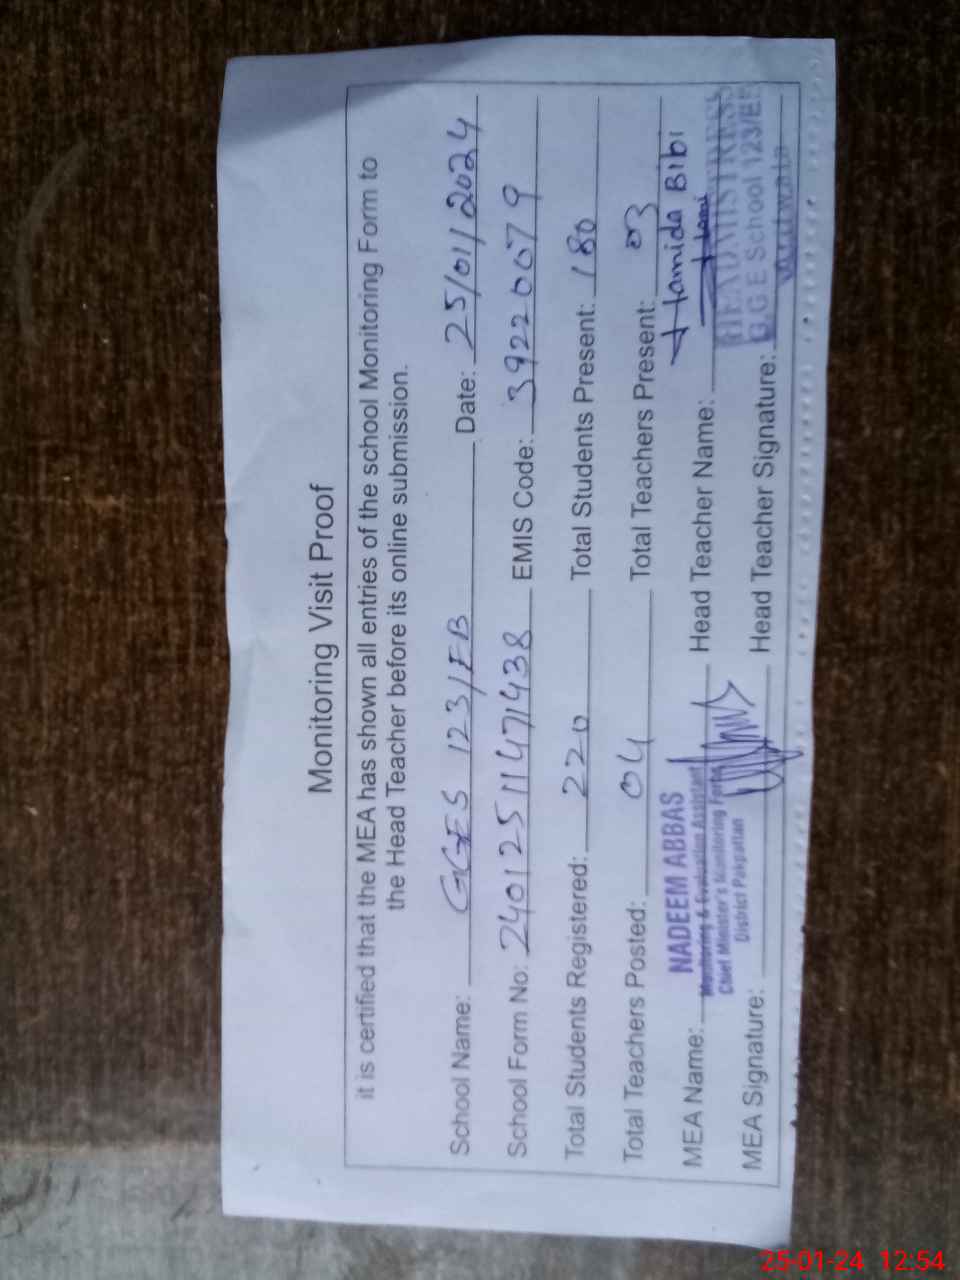 Monitoring Visit Proof
it is certified that the MEA has shown all entries of the school Monitoring Form to
the Head Teacher before its online submission.
School Name: GGES 123/EB Date: 25/01/2024
School Form No: 24012511471438 EMIS Code: 39220079
Total Students Registered: 220 Total Students Present: 180
Total Teachers Posted: 04 Total Teachers Present: 03
MEA Name: NADEEM ABBAS Head Teacher Name: Hamida Bibi
Monitoring & Evaluation Assistant
Chief Minister's Monitoring Force
District Pakpattan
HEADMISTRESS
G.G E School 123/E
MEA Signature: Head Teacher Signature:
25-01-24 12:54